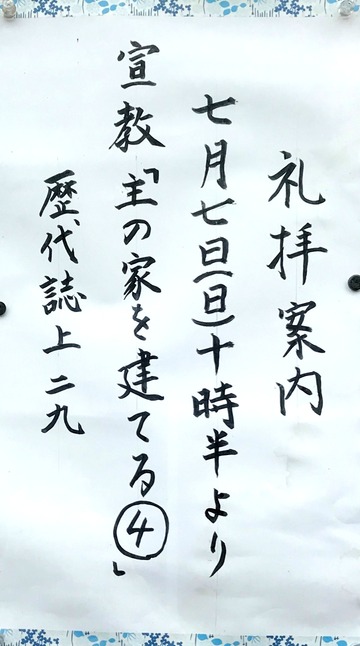 礼拝案内
七月七日(日)十時半より
宣教「主の家を建てる④」
歴代誌上二九